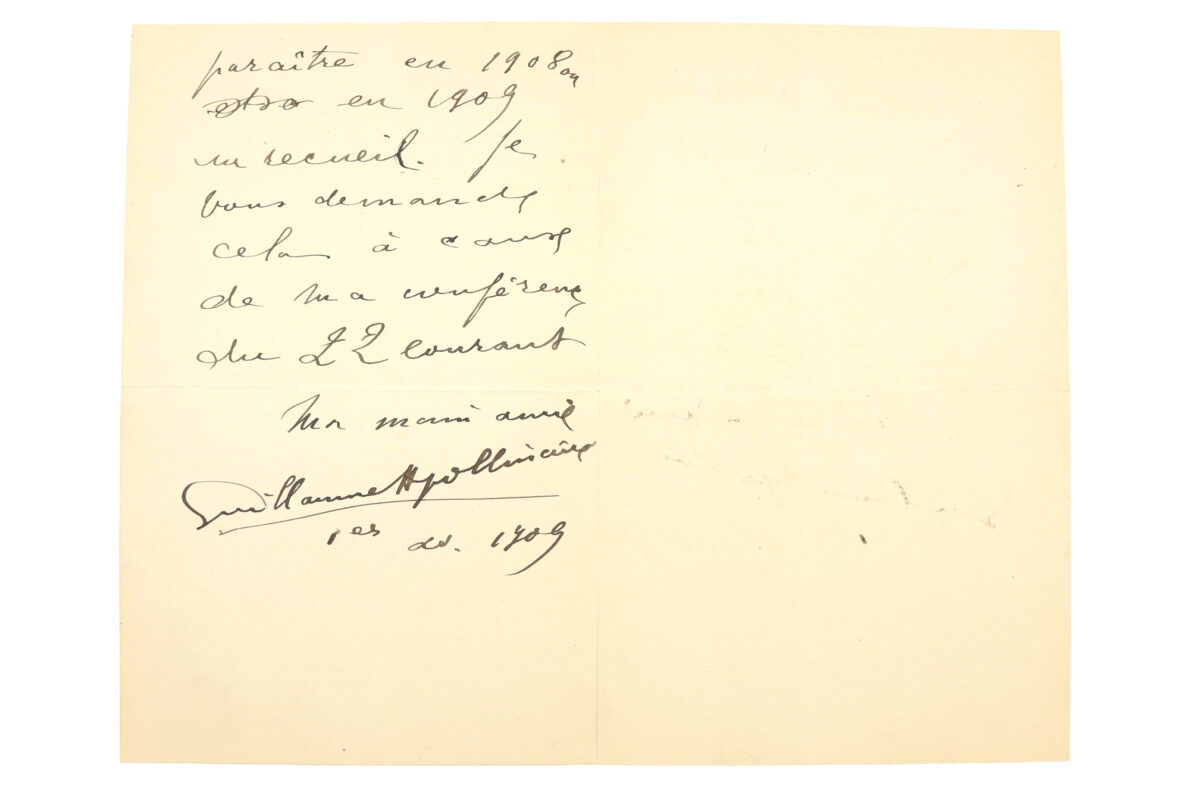 paraître en 1908 ou
en 1909
un recueil. Je
vous demande
cela à cause
de ma conférence
du 22 courant
Ma main amie
Guillaume Apollinaire
1er av. 1909